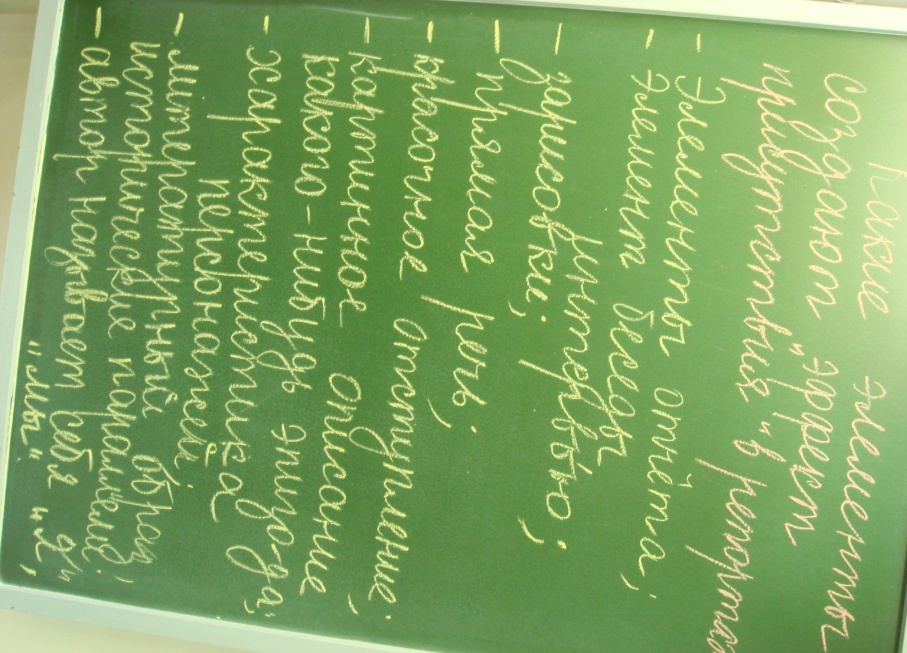 Какие элементы
создают "эффект
присутствия" в репортаж
- элементы отчёта;
- элемент беседы,
интервью;
- зарисовки;
- прямая речь;
- красочное отступление;
- картинное описание
какого-нибудь эпизода;
- характеристика
персонажей
- литературный образ,
исторические параллели;
- автор называет себя "Я",
"мы".